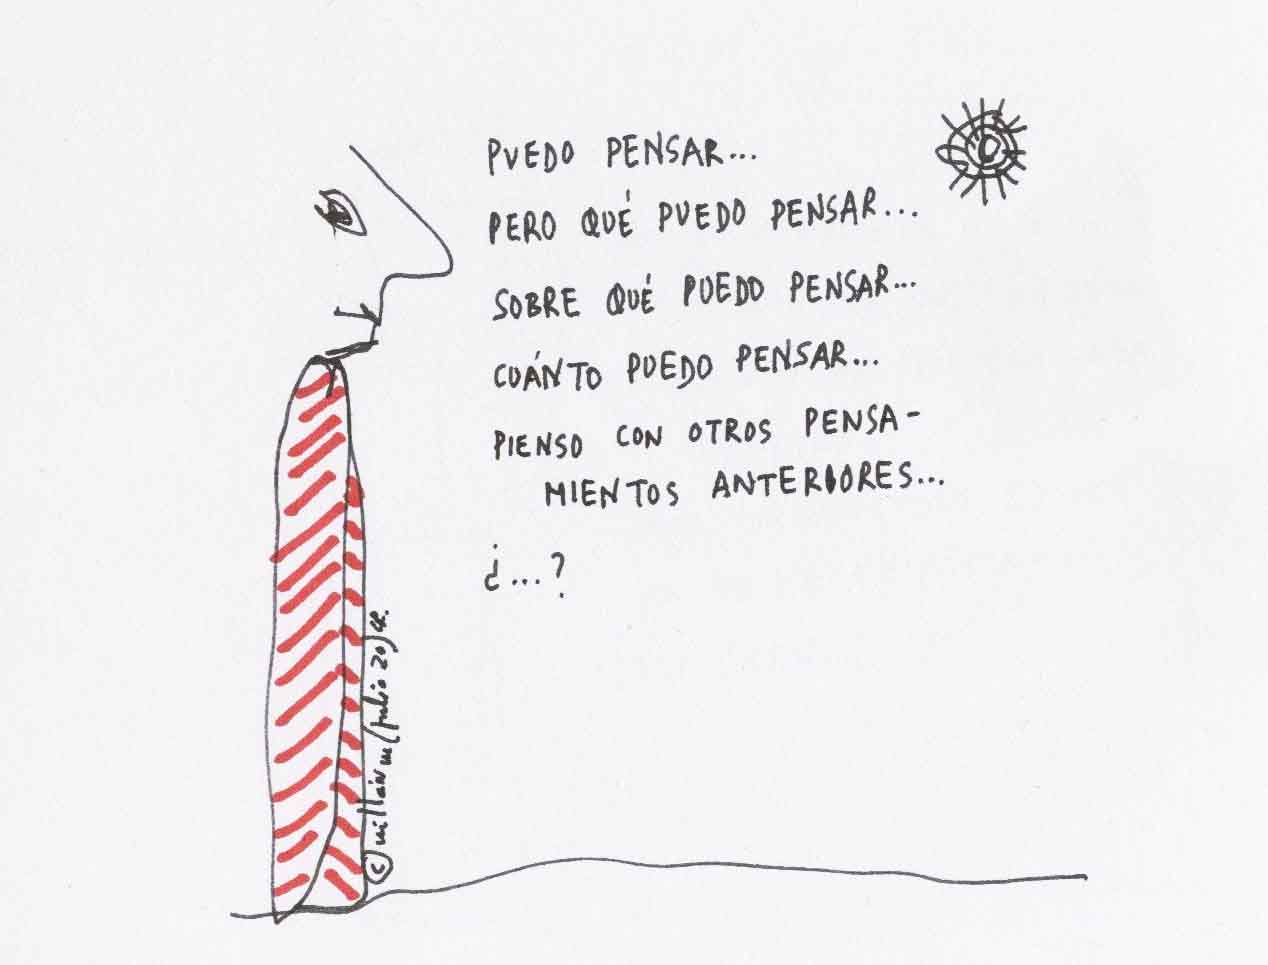 PUEDO PENSAR...
PERO QUÉ PUEDO PENSAR...
SOBRE QUÉ PUEDO PENSAR...
CUÁNTO PUEDO PENSAR...
PIENSO CON OTROS PENSA-
MIENTOS ANTERIORES...
¿...?
© millán m/julio 20